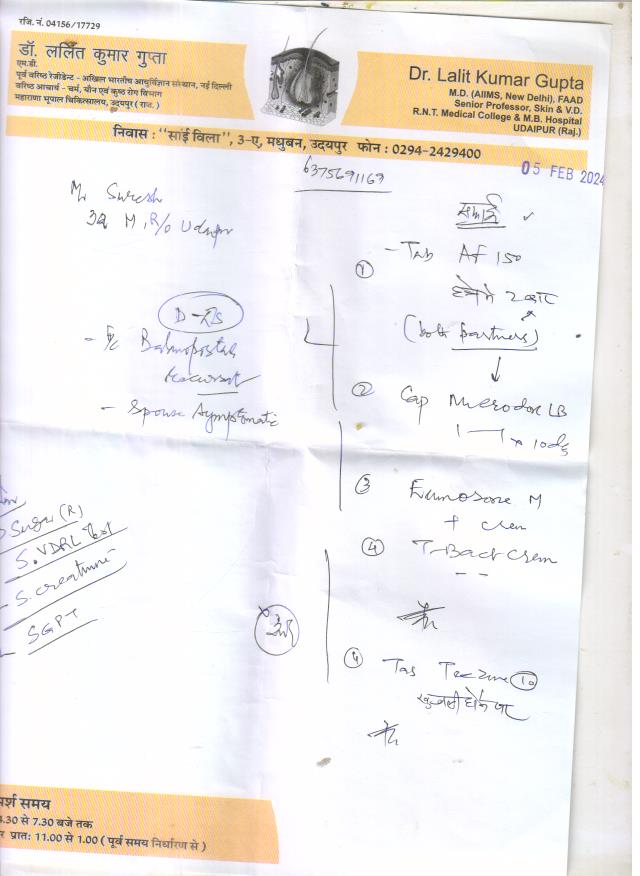 रजि. नं. 04156/17729
डॉ. ललित कुमार गुप्ता
एम.डी.
पूर्व वरिष्ठ रेजीडेन्ट - अखिल भारतीय आयुर्विज्ञान संस्थान, नई दिल्ली
वरिष्ठ आचार्य - चर्म, यौन एवं कुष्ठ रोग विभाग
महाराणा भूपाल चिकित्सालय, उदयपुर (राज.)
Dr. Lalit Kumar Gupta
M.D. (AIIMS, New Delhi), FAAD
Senior Professor, Skin & V.D.
R.N.T. Medical College & M.B. Hospital
UDAIPUR (Raj.)
निवास : "सांई विला", 3-ए, मधुबन, उदयपुर फोन : 0294-2429400
6375691169
05 FEB 2024
Mr Suresh
32 M, R/o Udaipur
सफाई
① - Tab Af 150
(both partners)
- Spouse Asymptomatic
②  Cap Microdox LB
x 10 days
③ Eumosone M
+ Crem
④ T-Bact Crem
Sugar (R)
S. VDRL Test
S. creatinine
SGPT
Tab Teczine 10
खुजली होने पर
र्श समय
.30 से 7.30 बजे तक
र प्रातः 11.00 से 1.00 ( पूर्व समय निर्धारण से )